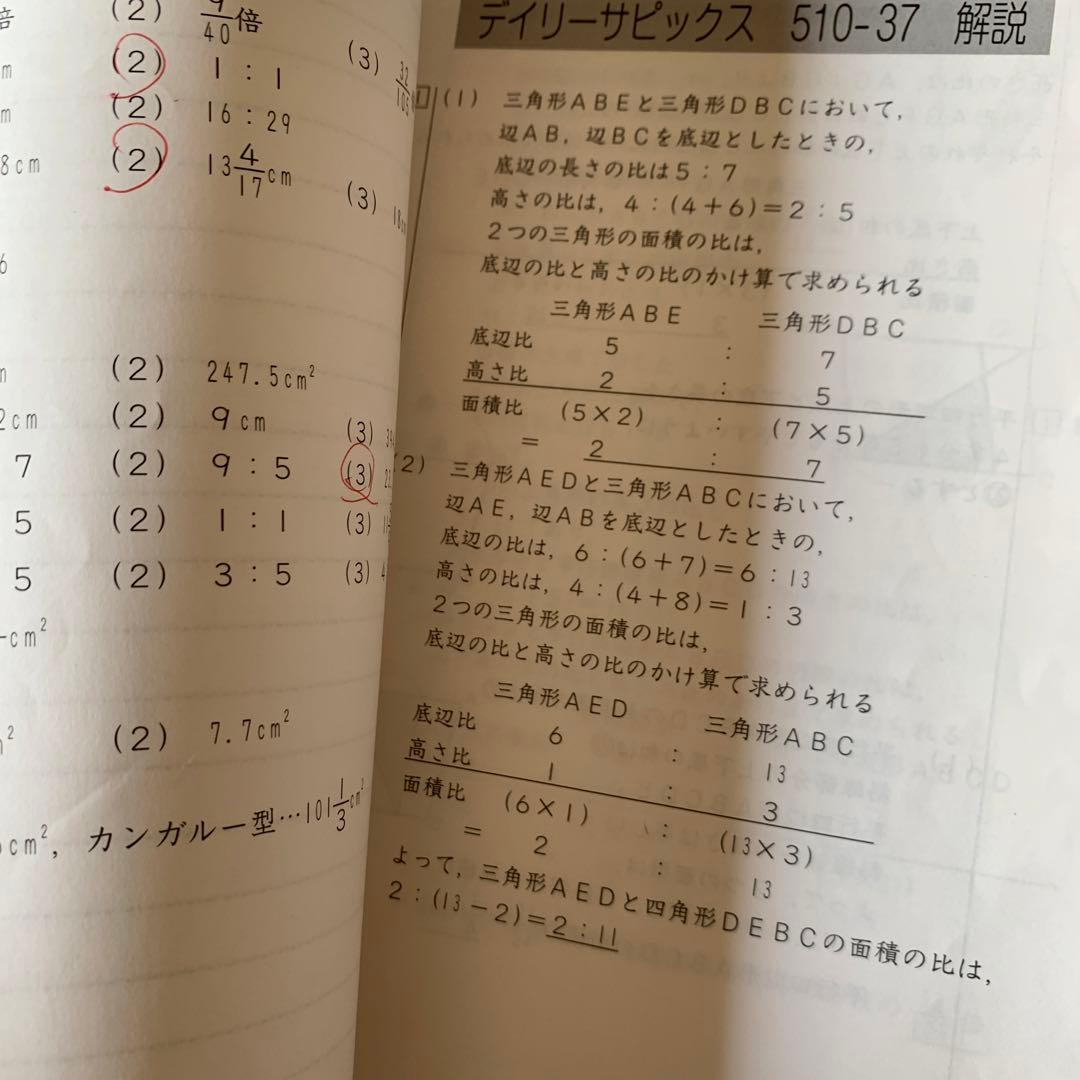 倍
(2) 9/40倍
m (2) 1 : 1 (3) 32/105
m (2) 16 : 29
8cm (2) 13 4/17cm (3) 18c
6
(2) 247.5cm²
2cm (2) 9cm (3)
7 (2) 9 : 5 (3)
5 (2) 1 : 1 (3)
5 (2) 3 : 5 (3) 4
cm²
(2) 7.7cm²
cm², カンガルー型…101 1/3cm²
デイリーサピックス 510-37 解説
(1) 三角形ABEと三角形DBCにおいて,
辺AB, 辺BCを底辺としたときの,
底辺の長さの比は5 : 7
高さの比は, 4 : (4+6)=2 : 5
2つの三角形の面積の比は,
底辺の比と高さの比のかけ算で求められる
三角形ABE 三角形DBC
底辺比 5 : 7
高さ比 2 : 5
面積比 (5×2) : (7×5)
= 2 : 7
(2) 三角形AEDと三角形ABCにおいて,
辺AE, 辺ABを底辺としたときの,
底辺の比は, 6 : (6+7)=6 : 13
高さの比は, 4 : (4+8)=1 : 3
2つの三角形の面積の比は,
底辺の比と高さの比のかけ算で求められる
三角形AED 三角形ABC
底辺比 6 : 13
高さ比 1 : 3
面積比 (6×1) : (13×3)
= 2 : 13
よって, 三角形AEDと四角形DEBCの面積の比は,
2 : (13-2)=2 : 11